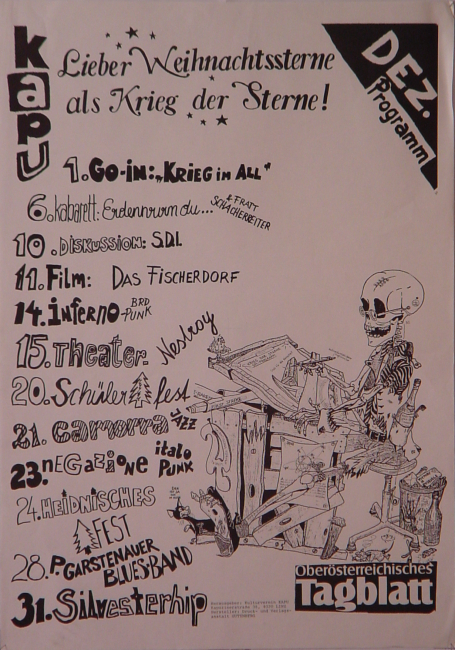 kapu
Lieber Weihnachtssterne
als Krieg der Sterne!
DEZ.
Programm
1. Go-in: „Krieg im All"
6. kabarett: Erdenwurm du... & FRATT
SCHACHERREITER
10. DISKUSSION: S.D.I.
11. Film: DAS FISCHERDORF
14. inferno - BRD
PUNK
15. Theater: Nestroy
20. Schüler fest
21. camorra JAZZ
23. nEGAZIONE italo
PUNK
24. HEIDNISCHES
FEST
28. P. GARSTENAUER
BLUES-BAND
31. Silvesterhip
Oberösterreichisches
Tagblatt